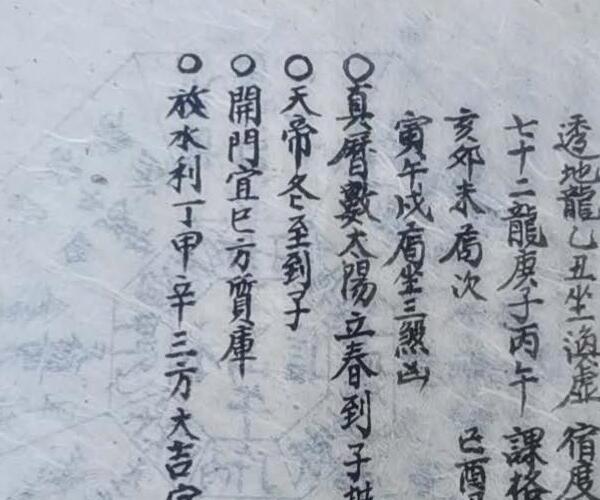 透地龍乙丑坐海虛宿度
七十二龍庚子丙午課格
亥卯未屬次 己酉
寅午戌屬坐三煞凶
○真曆數太陽立春到子
○天帝冬至到子
○開門宜巳方質庫
○放水利丁甲辛三方大吉